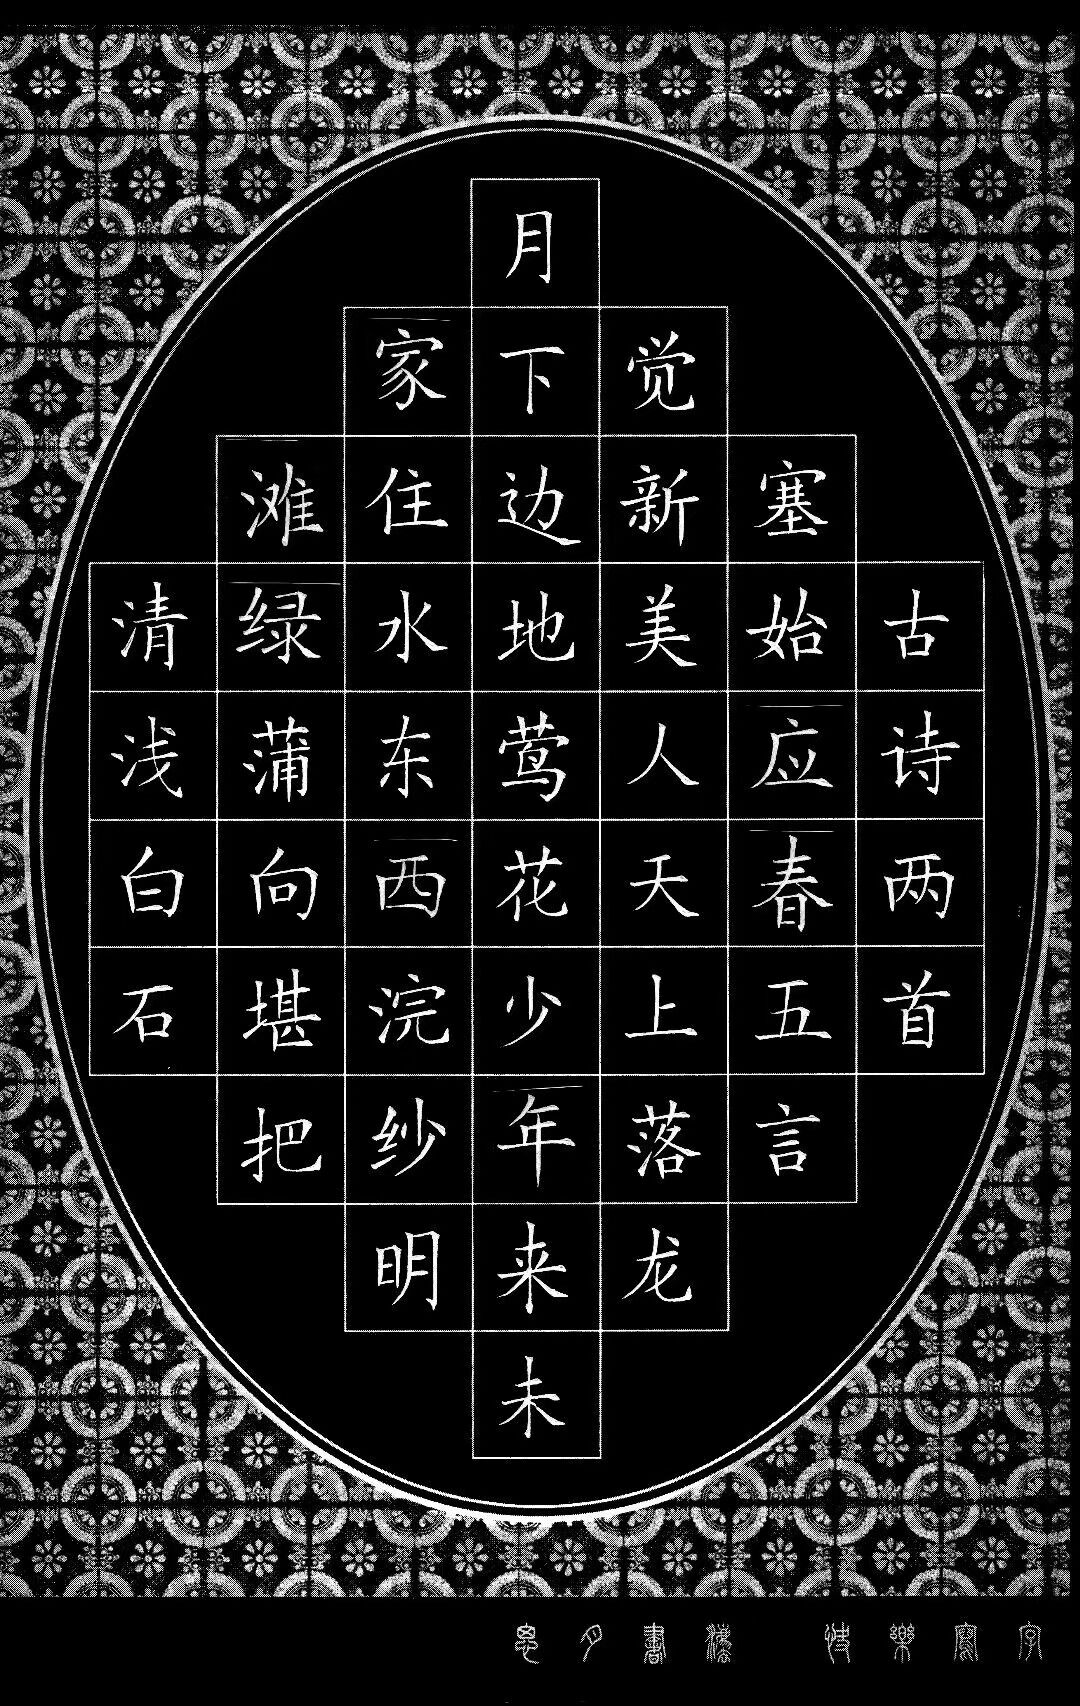 清浅白石
滩绿蒲向堪把
家住水东西浣纱明
月下边地莺花少年来未
觉新美人天上落龙
塞始应春五言
古诗两首
書法 快樂寫字